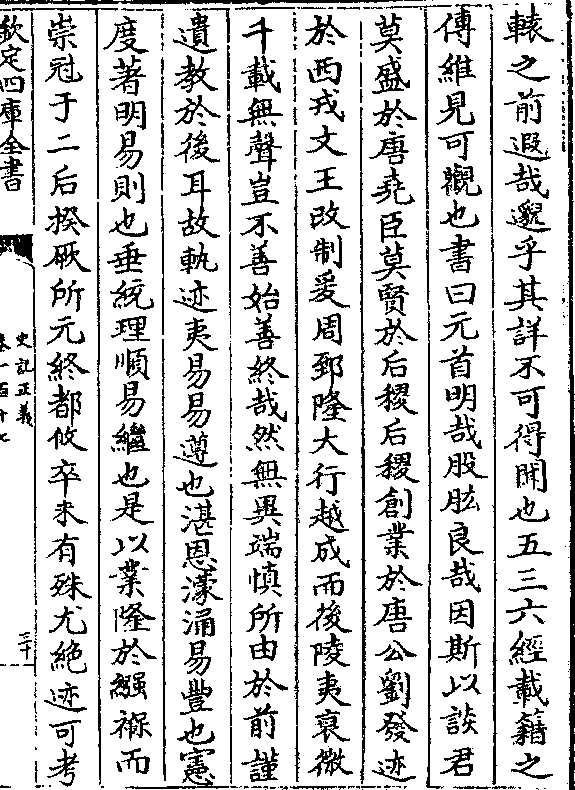 轅之前遐哉邈乎其詳不可得聞也五三六經載籍之
傳維見可觀也書曰元首明哉股肱良哉因斯以談君
莫盛於唐堯臣莫賢於后稷后稷創業於唐公劉發迹
於西戎文王改制爰周郅隆大行越成而後陵夷衰微
千載無聲豈不善始善終哉然無異端慎所由於前謹
遺教於後耳故軌迹夷易易遵也湛恩濛涌易豐也憲
度著明易則也垂統理順易繼也是以業隆於繈褓而
崇冠于二后揆厥所元終都攸卒未有殊尤絶迹可考
欽定四庫全書
史記正義
卷一百十七
三十